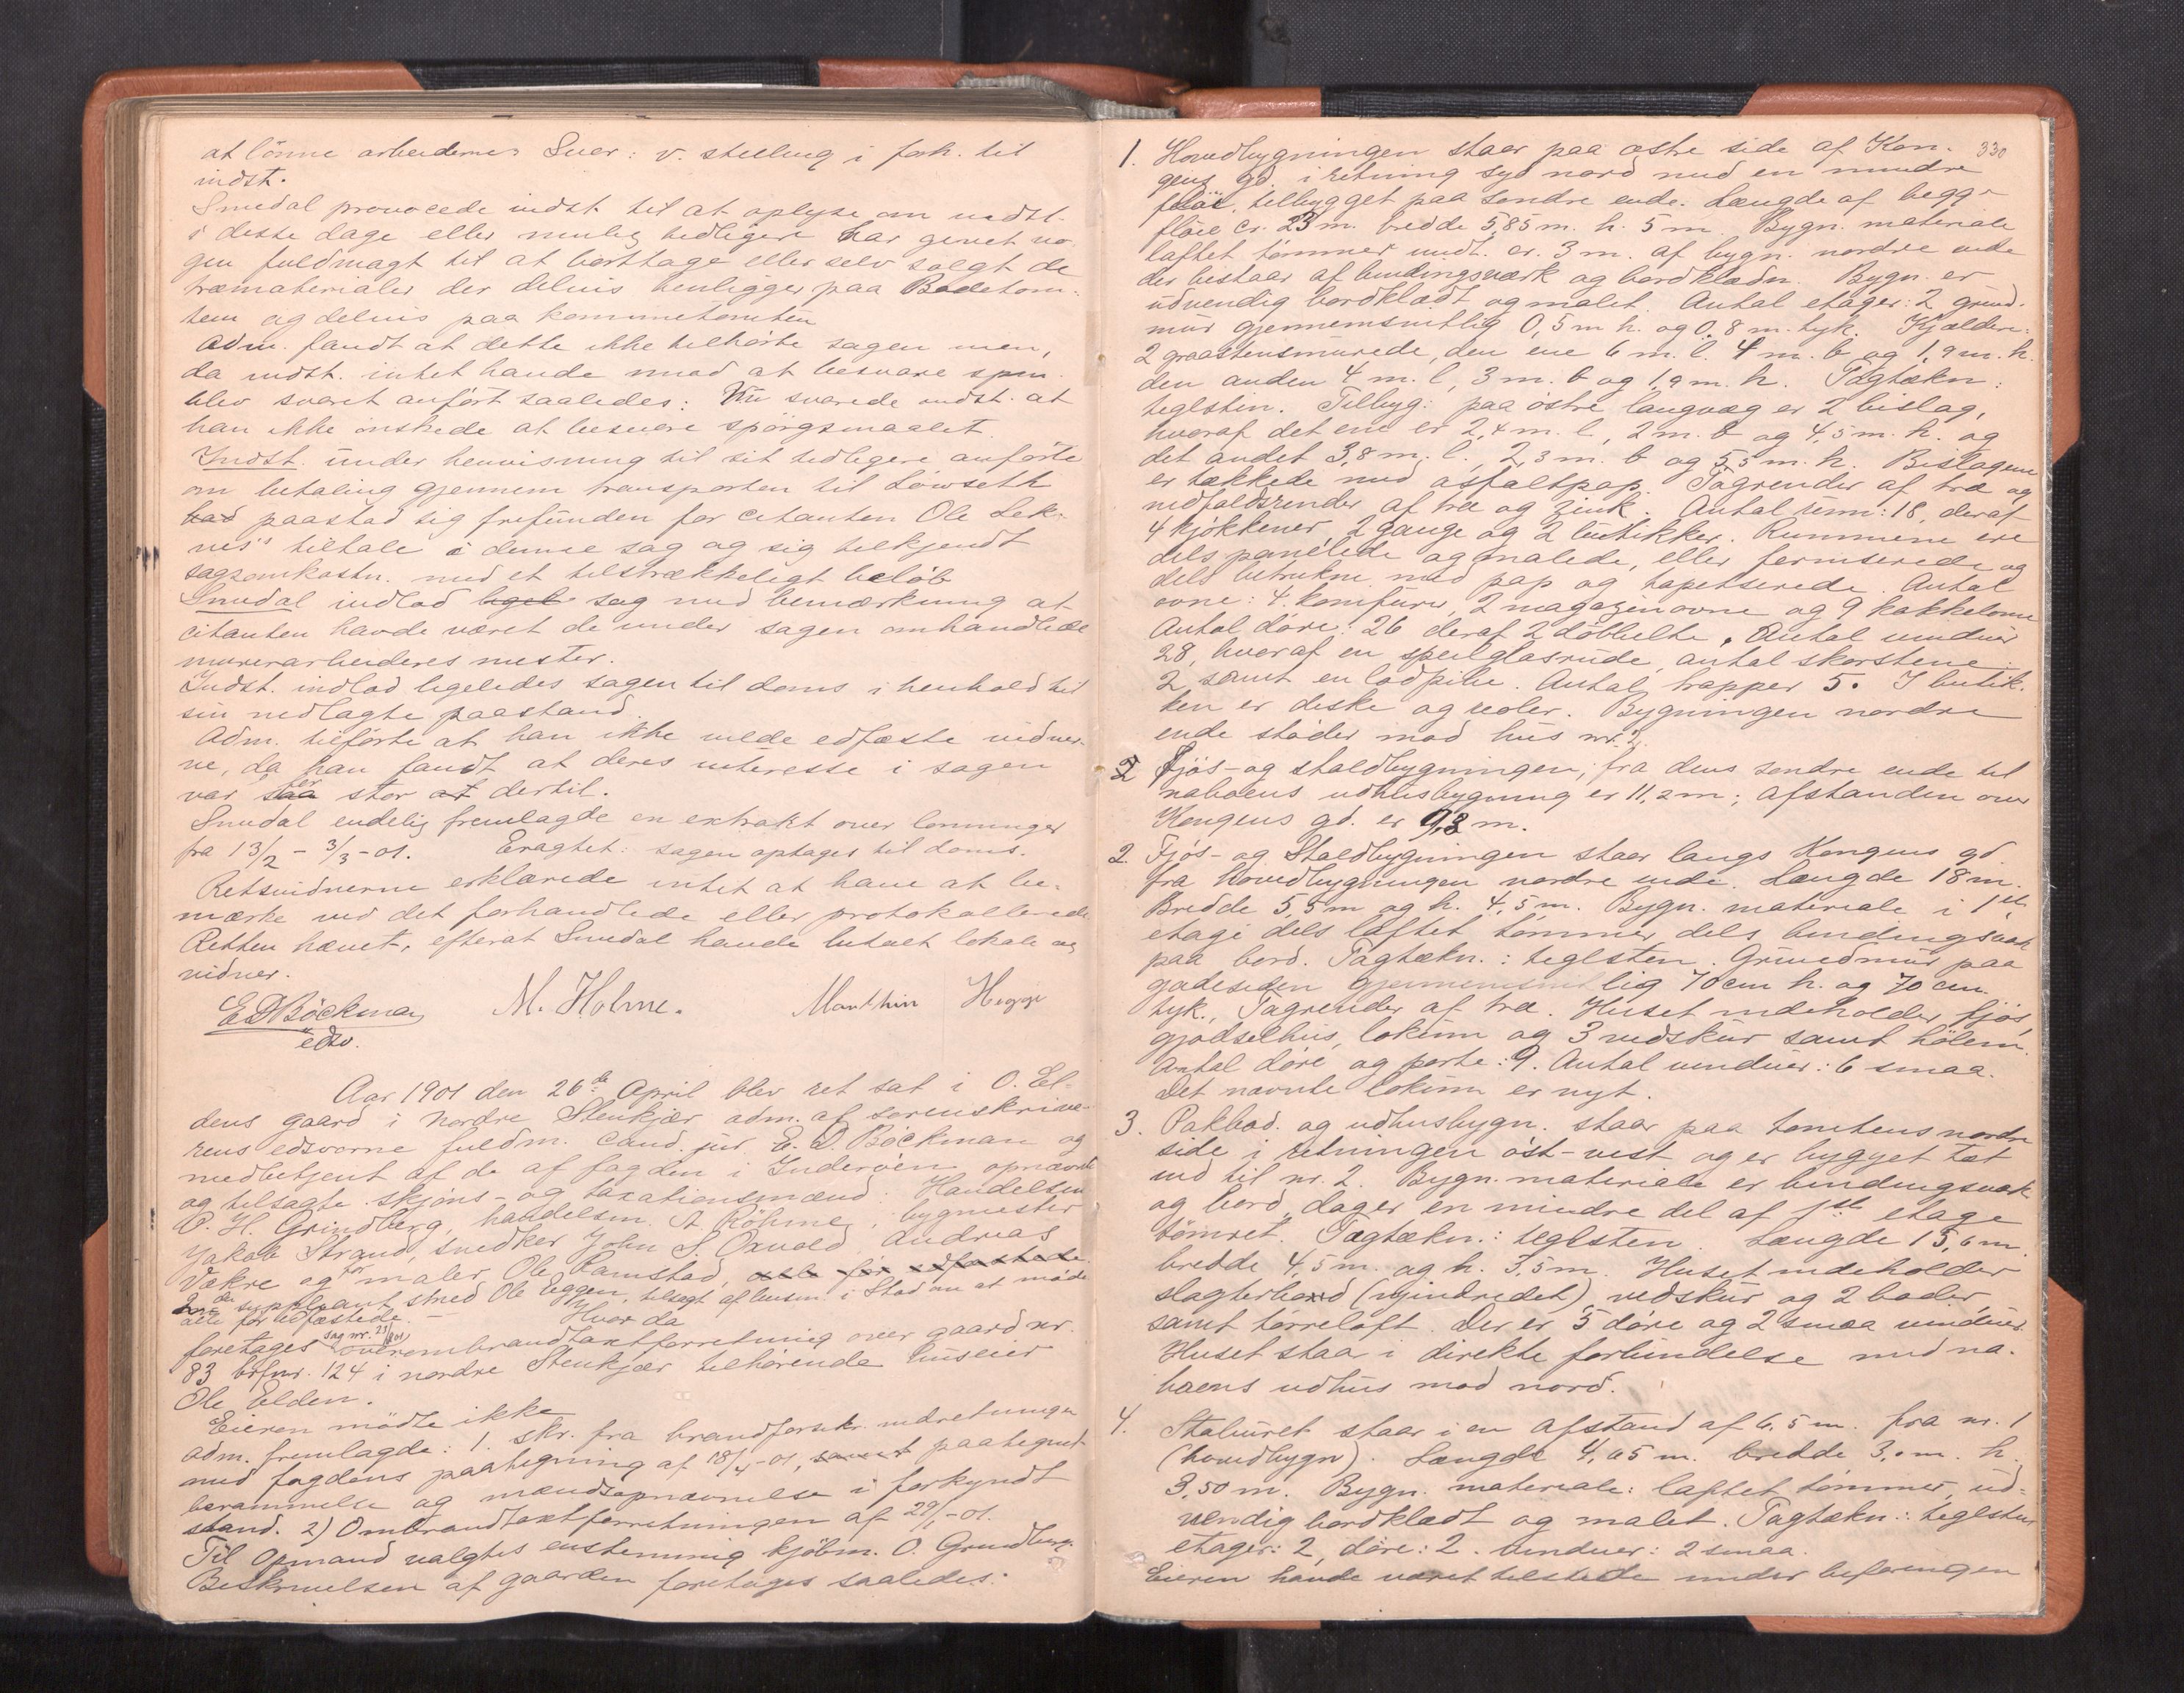 at lönne arbeiderne? Svar: v. stilling i forh. til
indst.
Smedal provocede indst. til at oplyse om indst.
i disse dage eller mulig tidligere har givet no-
gen fuldmagt til at borttage eller selv solgt de
træmaterialer der delvis henligger paa Bodetom-
ten og delvis paa kommunetomten
Adm. fandt at dette ikke tilhørte sagen men,
da indst. intet havde mod at besvare spm.
blev svaret anført saaledes: Nu svarede indst. at
han ikke ønskede at besvare spörgsmaalet.
Indst. under henvisning til sit tidligere anførte
om betaling gjennem transporten til Löwseth
bad paastod sig frifunden for citanten Ole Lek-
nes's tiltale i denne sag og sig tilkjendt
sagsomkostn. med et tilstrækkeligt beløb
Smedal indlod ligel. sag med bemærkning at
citanten havde været de under sagen omhandlede
murerarbeideres mester.
Indst. indlod ligeledes sagen til doms i henhold til
sin nedlagte paastand.
Adm. tilførte at han ikke vilde edfæste vidner-
ne, da han fandt at deres interesse i sagen
var saa for stor at dertil.
Smedal endelig fremlagde en extrakt over lønninger
fra 13/2 - 3/3 - 01. Eragtet: sagen optages til doms.
Retsvidnerne erklærede intet at have at be-
mærke ved det forhandlede eller protokollerede
Retten hævet, efterat Smedal havde betalt lokale og
vidner.
E D Böckman M. Holme. Marthin Hegge
edsv.
Aar 1901 den 26de April blev ret sat i O. El-
dens gaard i nordre Stenkjær adm. af sorenskrive-
rens edsvorne fuldm. cand. jur. E. D. Böckman og
medbetjent af de af fogden i Inderöen opnævnte
og tilsagte skjöns- og taxationsmænd: Handelsm.
O. H. Grindberg, handelsm. A. Röhme, bygmester
Jakob Strand, snedker John S. Oxvold, Andreas
Vakre og for maler Ole Ramstad, alle før edfæstede.
2den suppleant smed Ole Eggen, tilsagt af lensm. i Stod om at møde
alle før edfæstede. - Hvorda
foretages sag nr. 23/1901 overombrandtaxtforretning over gaard nr.
83 brfnr. 124 i nordre Stenkjær tilhørende huseier
Ole Elden.
Eieren mödte ikke
adm. fremlagde: 1. skr. fra brandforsikr. indretningen
med fogdens paategning af 18/4-01, samt paategnet
berammelse og mændsopnævnelse i forkyndt
stand. 2) Ombrandtaxtforretningen af 29/1-01.
Til Opmand valgtes enstemmig kjöbm. O. Grindberg.
Beskrivelsen af gaarden foretoges saaledes:
330
1. Hovedbygningen staar paa østre side af Kon-
gens gd. i retning syd nord med en mindre
fløi, tilbygget paa søndre ende. Længde af begge
fløie cr. 23 m. bredde 5,85 m. h. 5 m. Bygn. materiale
laftet tømmer undt. cr. 3 m. af bygn. nordre ende
der bestaar af bindingsværk og bordklædn. Bygn. er
udvendig bordklædt og malet. Antal etager: 2, grund-
mur gjennemsnitlig 0,5 m h. og 0,8 m. tyk. Kjældere:
2 graastensmurede, den ene 6 m. l. 4 m. b og 1,9 m. h.
den anden 4 m. l, 3 m. b og 1,9 m. h. Tagtækn:
teglsten. Tilbyg: paa østre langvæg er 2 bislag,
hvoraf det ene er 2,4 m. l, 2 m. b og 4,5 m. h. og
det andet 3,8 m. l. 2,3 m. b og 5,5 m. h. Bislagene
er tækkede med asfaltpap. Tagrender af træ og
nedfaldsrender af træ og zink. Antal rum: 18, deraf
4 kjøkkener, 2 gange og 2 butikker. Rummene ere
dels panelede og malede, eller ferniserede og
dels betrukne med pap og tapetserede. Antal
ovne: 4 komfurer, 2 magazinovne og 9 kakkelovne
Antal døre: 26 deraf 2 döbbelte. Antal vinduer
28, hvoraf en speilglasrude, antal skorstene
2, samt en lodpibe. Antal trapper 5. I butik-
ken er diske og reoler. Bygningen nordre
ende støder mod hus nr.
2 Fjös- og staldbygningen; fra dens søndre ende til
naboens udhusbygning er 11,2 m; afstanden over
Kongens gd. er 9,8 m.
2. Fjös- og Staldbygningen staar langs Kongens gd
fra hovedbygningen nordre ende. Længde 18 m.
Bredde 5,5 m og h. 4,5 m. Bygn. materiale i 1ste
etage dels laftet tømmer dels bindingsværk
paa bord. Tagtækn.: teglsten. Grundmur paa
gadesiden gjennemsnitlig 70 cm h. og 70 cm.
tyk. Tagrender af træ. Huset indeholder fjös,
gjødselhus, lokum og 3 vedskur samt hölem.
Antal døre og porte: 9. Antal vinduer: 6 smaa.
Det nævnte lokum er nyt.
3. Pakbod. og udhusbygn. staar paa tomtens nordre
side i retningen öst-vest og er bygget tæt
ind til nr. 2. Bygn. materiale er bindingsværk
og bord, dog er en mindre del af 1ste etage
tömret. Tagtækn.: teglsten. Længde 15,6 m.
bredde 4,5 m. og h. 3,5 m. Huset indeholder
slagterbod (nyindredet), vedskur og 2 boder
samt tørreloft. Der er 5 döre og 2 smaa vinduer.
Huset staar i direkte forbindelse med na-
boens udhus mod nord.
4. Staburet staar i en afstand af 6,5 m. fra nr. 1
(hovedbygn). Længde 4,65 m. bredde 3,0 m. h.
3,50 m. Bygn. materiale: laftet tømmer, ud-
vendig bordklædt og malet. Tagtækn.: teglsten
etager: 2, döre: 2. vinduer: 2 smaa.
Eieren havde været tilstede under befaringen